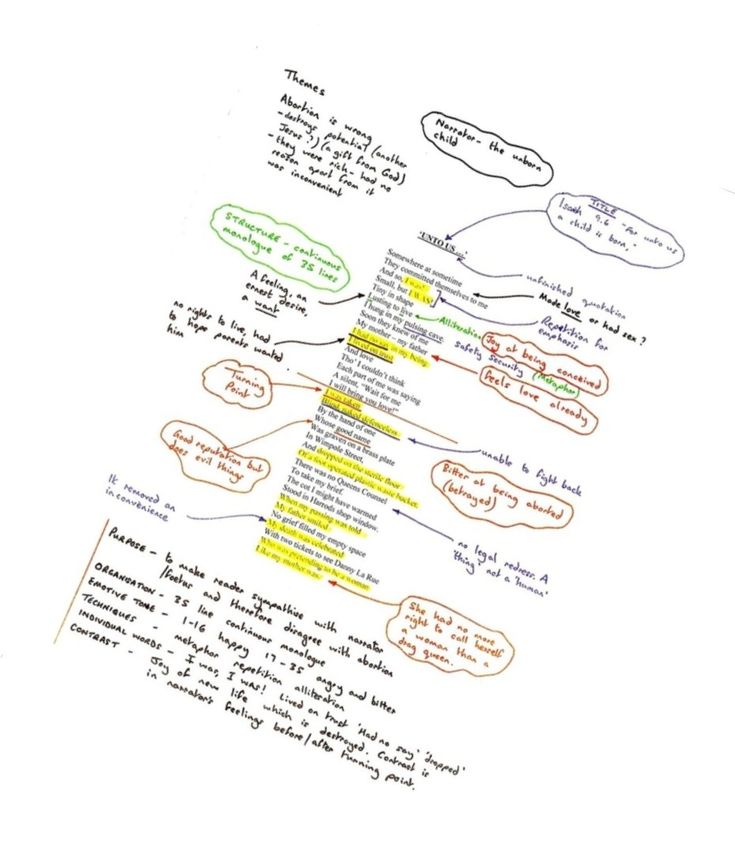 Themes
Abortion is wrong
- destroys potential (another
Jesus?) (a gift from God)
- they were rich - had no
reason apart from it
was inconvenient
Narrator - the unborn
child
TITLE
Isaiah 9.6 "For unto us
a child is born,"
STRUCTURE - continuous
monologue of 35 lines
unfinished quotation
Made love or had sex?
Repetition for
emphasis
A feeling, an
ernest desire,
a want
Alliteration
safety security (Metaphor)
no rights to live, had
to hope parents wanted
him
Joy at being conceived
Feels love already
Turning
Point
Good reputation but
does evil things
unable to fight back
Bitter at being aborted
(betrayed)
It removed an
inconvenience
no legal redress. A
'thing' not a 'human'
She had no more
right to call herself
a woman than a
drag queen.
'UNTO US...'
Somewhere at sometime
They committed themselves to me
And so, I was!
Small, but I WAS!
Tiny in shape
Lusting to live
I hung in my pulsing cave.
Soon they knew of me
My mother – my father
I had no say in my being
I lived on trust
And love
Tho' I couldn't think
Each part of me was saying
A silent, "Wait for me
I will bring you love!"
I was taken
Blind, naked defenceless
By the hand of one
Whose good name
Was graven on a brass plate
In Wimpole Street,
And dropped on the sterile floor
Of a foot operated plastic waste bucket.
There was no Queens Counsel
To take my brief.
The cot I might have warmed
Stood in Harrods shop window.
When my passing was told
My father smiled.
No grief filled my empty space
My death was celebrated
With two tickets to see Danny La Rue
Who was pretending to be a woman
Like my mother was.
PURPOSE - to make reader sympathise with narrator
/foetus and therefore disagree with abortion
ORGANISATION - 35 line continuous monologue
EMOTIVE TONE - 1-16 happy 17-35 angry and bitter
TECHNIQUES - metaphor repetition alliteration
INDIVIDUAL WORDS - I was, I was! Lived on trust 'Had no say' 'dropped'
CONTRAST - Joy of new life which is destroyed. Contrast is
in narrator's feelings before/after turning point.